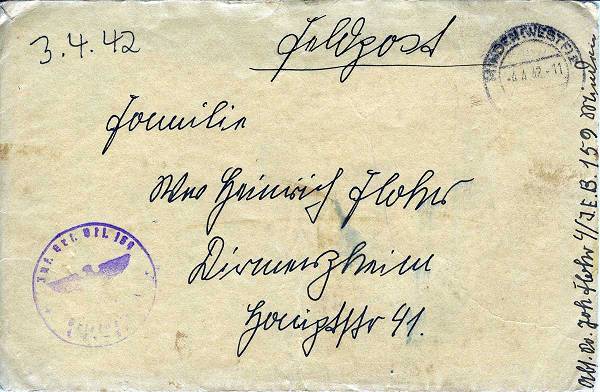 3.4.42
Feldpost
MINDEN (WESTF)
-4.4.42-11
Familie
Wwe Heinrich Flohr
Dirmerzheim
Hauptstr 41.
Inf. Ers. Btl. 159
Abs. Gr. Joh Flohr 4/I.E.B. 159 Minden